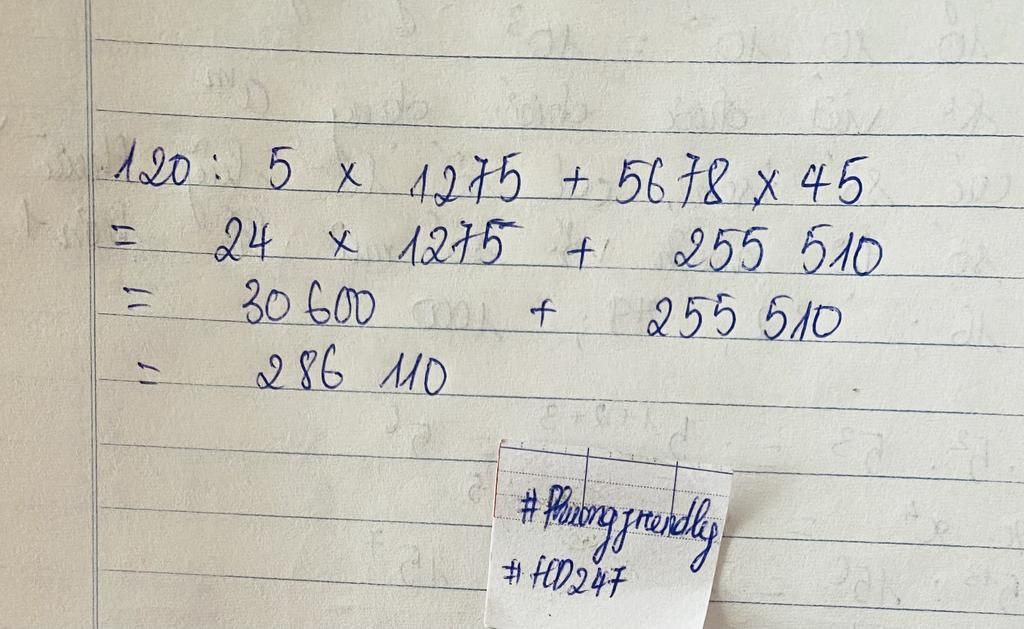 120 : 5 x 1275 + 5678 x 45
= 24 x 1275 + 255 510
= 30 600 + 255 510
= 286 110
#Phuongfriendly
#HD247